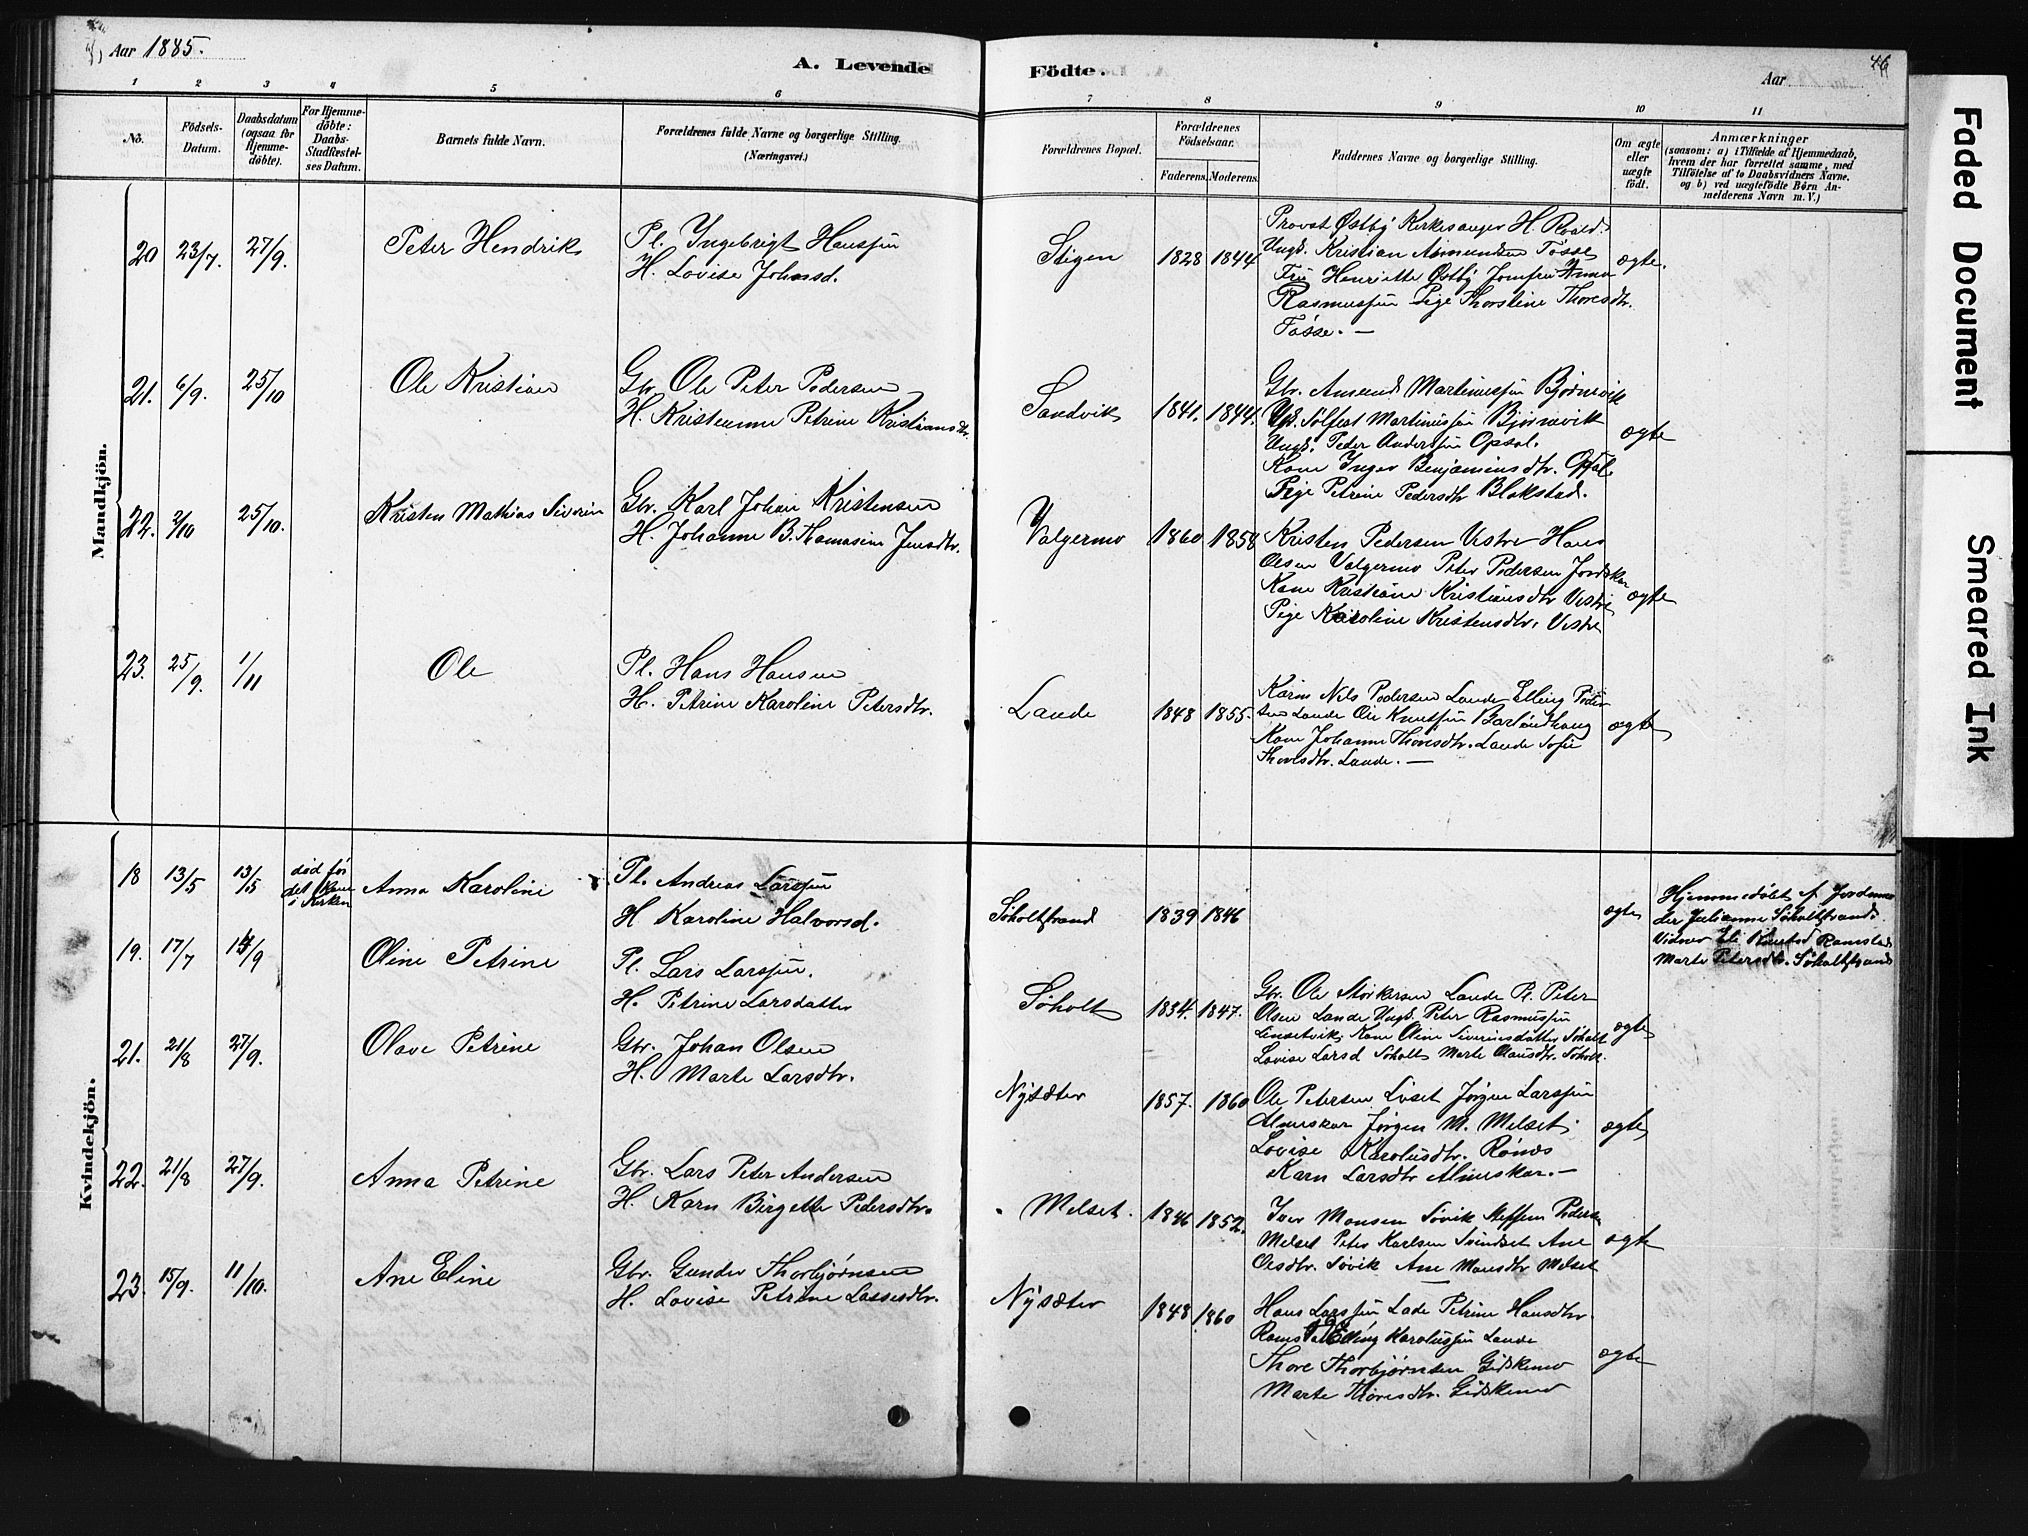 Aar 1885.
A. Levende
Födte.
Aar
46
1
2
3
4
5
6
7
8
9
10
11
No.
Födsels-
Datum.
Daabsdatum
(ogsaa for
Hjemme-
döbte).
For Hjemme-
döbte:
Daabs-
Stadfæstel-
ses Datum.
Barnets fulde Navn.
Forældrenes fulde Navne og borgerlige Stilling.
(Næringsvei.)
Forældrenes Bopæl.
Forældrenes
Födselsaar.
Faderens.
Moderens.
Faddernes Navne og borgerlige Stilling.
Om ægte
eller
uægte
födt.
Anmærkninger
(saasom: a) i Tilfælde af Hjemmedaab,
hvem der har forrettet samme, med
Tilföielse af to Daabsvidners Navne,
og b) ved uægtefödte Børn An-
melderens Navn m. V.)
Mandkjön.
20
23/7.
27/9.
Peter Hendrik
Pl. Ingebrigt Hanssen
H. Lovise Johansd.
Stigen
1828
1844
Provst Østby Kirkesanger H. Roald.
Ungk. Kristian Amundsen Fosse
Fru Henriette Østby Jomfru Anna
Rasmussen Pige Thorstine Thoresdtr.
Fosse. —
ægte.
21.
6/9.
25/10
Ole Kristian
Gbr. Ole Peter Pedersen
H. Kristianne Petrine Kristiansdtr.
Sandvik
1841.
1844.
Gbr. Amund Martinussen Bjørnevik
Ungk. Sølfest Martinussen Bjørnevik
Ungk. Peder Anderssen Opsal.
Kone Inger Benjaminsdtr. Opsal
Pige Petrine Pedersdtr Blokstad.
ægte
22.
2/10
25/10.
Kristen Mathias Siverin
Gbr. Karl Johan Kristensen
H. Johanne B. Thomasine Jensdtr.
Valgermo
1860
1858
Kristen Pedersen Vestre Hans
Olsen Valgermo Peter Pedersen Jordskar
Kone Kristiane Kristiansdtr Vestre
Pige Karoline Kristensdtr. Vestre
ægte
23.
25/9.
1/11
Ole
Pl. Hans Hansen
H. Petrine Karoline Petersdtr.
Lande
1848
1855.
Karin Nils Pedersen Lande Elling Peder
sen Lande Ole Knutssen Barlindhaug
Kone Johanne Thoresdtr. Lande Sofie
Thoresdtr. Lande. —
ægte
Kvindekjön.
18
13/5
13/5
død før
det kom
i Kirken
Anna Karoline
Pl. Andreas Larssen
H Karoline Halvorsd.
Søholtstrand
1839
1846
ægte
Hjemmedøbt af Jordemo
der Julianne Søholtstrand.
Vidner Eli Knutsd Ramstad
Marte Petersdtr. Søholtstrand
19.
17/7
13/9
Oline Petrine
Pl. Lars Larssen.
H. Petrine Larsdatter
Søholt
1834.
1847.
Gbr. Ole Størkersen Lande Pl. Peter
Olsen Lande Ungk. Peter Rasmussen
Linsetvik Kone Oline Siverinsdatter Søholt
Lovise Larsd Søholt Marte Olausdtr. Søholt.
ægte
21.
21/8
27/9.
Olave Petrine
Gbr. Johan Olsen
H. Marte Larsdtr.
Nysæter
1857.
1860
Ole Petersen Løset Jørgen Larssen
Almeskar Jørgen M. Melset.
Lovise Karolusdtr. Rønes
Karn Larsdtr Almeskar. —
ægte
22.
21/8
27/9.
Anna Petrine
Gbr. Lars Peter Andersen
H. Karn Birgitte Pedersdtr.
Melset.
1846
1852.
Iver Monsen Søvik Steffen Peders.
Melset Peter Karlsen Svindset Ane
Olsdtr. Søvik Ane Monsdtr Melset
ægte
23.
15/9.
11/10.
Ane Eline
Gbr. Gunder Thorbjørnsen
H. Lovise Petrine Lassesdtr.
Nysæter
1848
1860
Hans Larssen Lade Petrine Hansdtr.
Ramstad Elling Karolussen Lande
Thore Thorbjørnsen Gidskemo
Marte Thoresdtr. Gidskemo
ægte
Faded Document
Smeared Ink